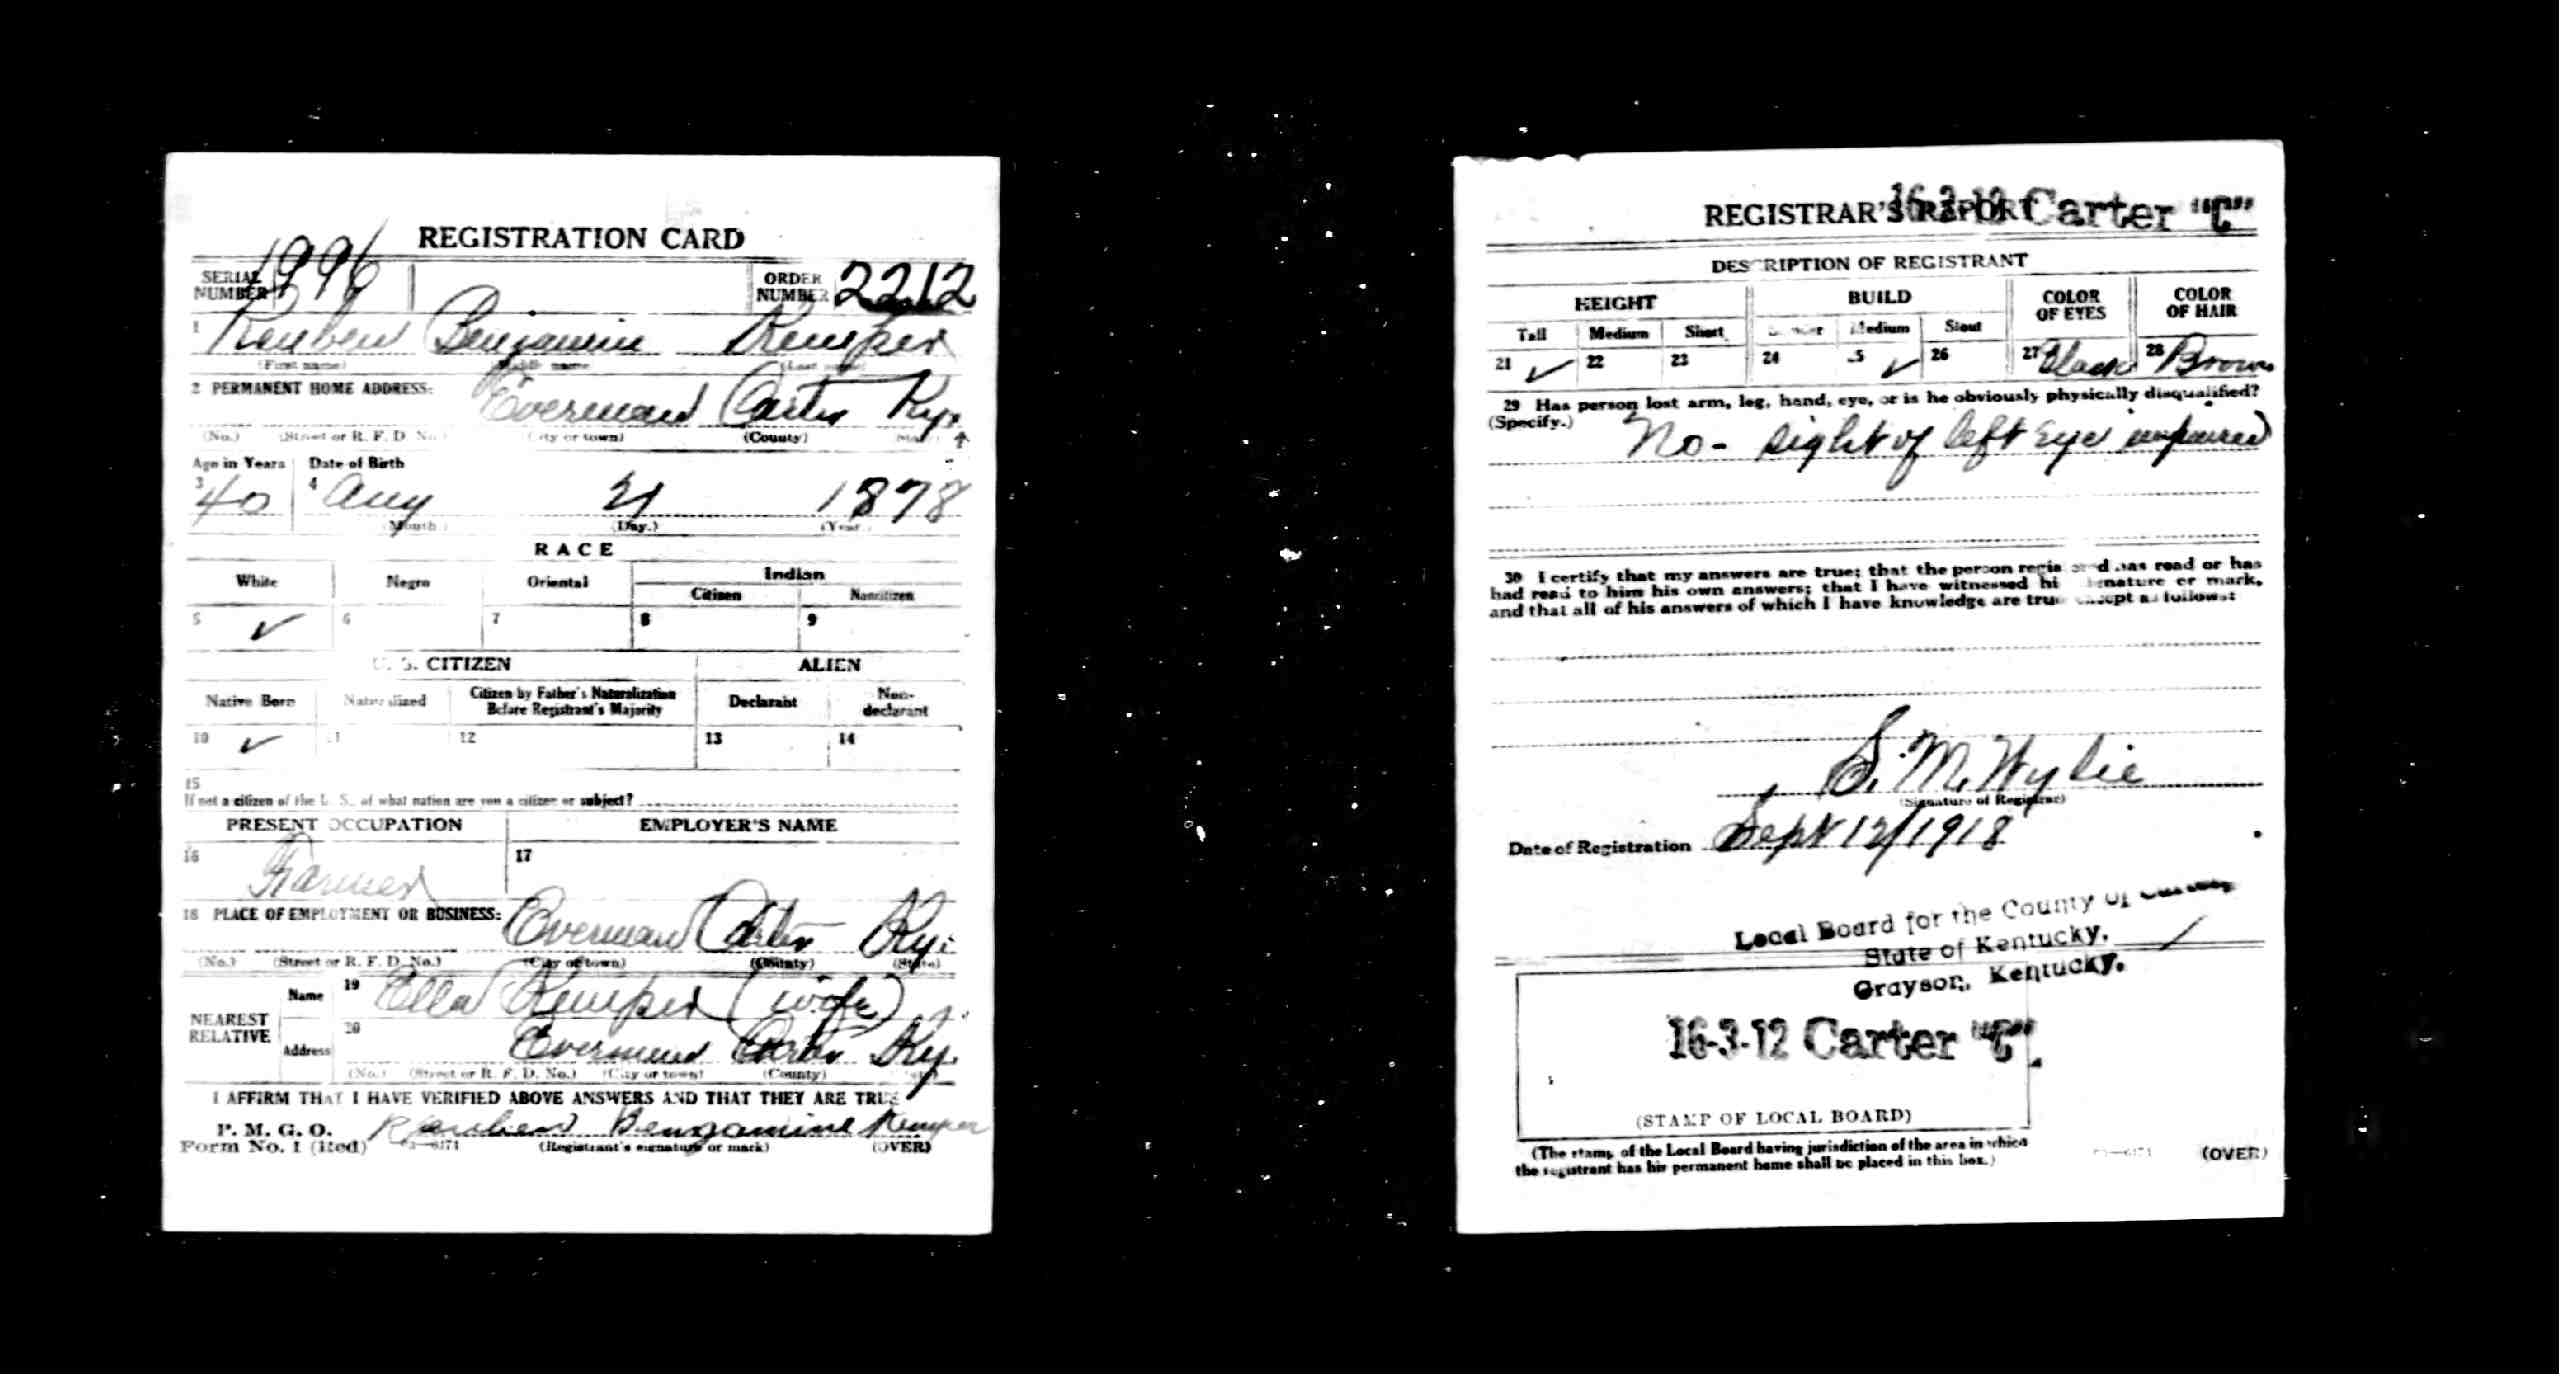 REGISTRATION CARD
SERIAL NUMBER 1996
ORDER NUMBER 2212
1 Reuben Benjamin Kemper
(First name) (Middle name) (Last name)
2 PERMANENT HOME ADDRESS:
Everman Carter Ky.
(No.) (Street or R. F. D. No.) (City or town) (County) (State)
Age in Years Date of Birth
3 40 4 Aug 21 1878
(Month.) (Day.) (Year.)
RACE
White Negro Oriental Indian
Citizen Noncitizen
5 ✓ 6 7 8 9
U. S. CITIZEN ALIEN
Native Born Naturalized Citizen by Father's Naturalization Before Registrant's Majority Declarant Non-declarant
10 ✓ 11 12 13 14
15
If not a citizen of the U. S., of what nation are you a citizen or subject?
PRESENT OCCUPATION EMPLOYER'S NAME
16 Farmer 17
18 PLACE OF EMPLOYMENT OR BUSINESS:
Everman Carter Ky.
(No.) (Street or R. F. D. No.) (City or town) (County) (State)
NEAREST RELATIVE
Name 19 Ella Kemper (wife)
Address 20 Everman Carter Ky.
(No.) (Street or R. F. D. No.) (City or town) (County) (State)
I AFFIRM THAT I HAVE VERIFIED ABOVE ANSWERS AND THAT THEY ARE TRUE
P. M. G. O.
Form No. 1 (Red)
Reuben Bengamine Kemper
3—6171 (Registrant's signature or mark) (OVER)
REGISTRAR'S REPORT
16-3-12 Carter "C"
DESCRIPTION OF REGISTRANT
HEIGHT BUILD COLOR OF EYES COLOR OF HAIR
Tall Medium Short Slender Medium Stout
21 ✓ 22 23 24 25 ✓ 26 27 Black 28 Brown
29 Has person lost arm, leg, hand, eye, or is he obviously physically disqualified?
(Specify.)
No- sight of left Eye impaired
30 I certify that my answers are true; that the person registered has read or has
had read to him his own answers; that I have witnessed his signature or mark,
and that all of his answers of which I have knowledge are true except as follows:
S. M. Wylie
(Signature of Registrar)
Date of Registration Sept 12/1918
Local Board for the County of
State of Kentucky,
Grayson, Kentucky.
16-3-12 Carter "C"
(STAMP OF LOCAL BOARD)
(The stamp of the Local Board having jurisdiction of the area in which
the registrant has his permanent home shall be placed in this box.)
3—6171 (OVER)